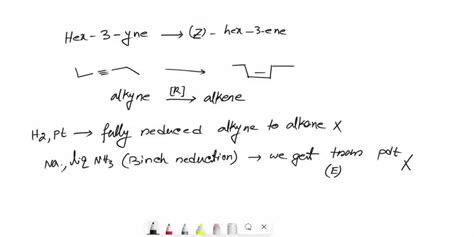 Hex-3-yne → (Z)- hex-3-ene
alkyne [R] → alkene
H2, Pt → fully reduced alkyne to alkane X
Na, liq NH3 (Birch reduction) → we get trans pdt X
(E)